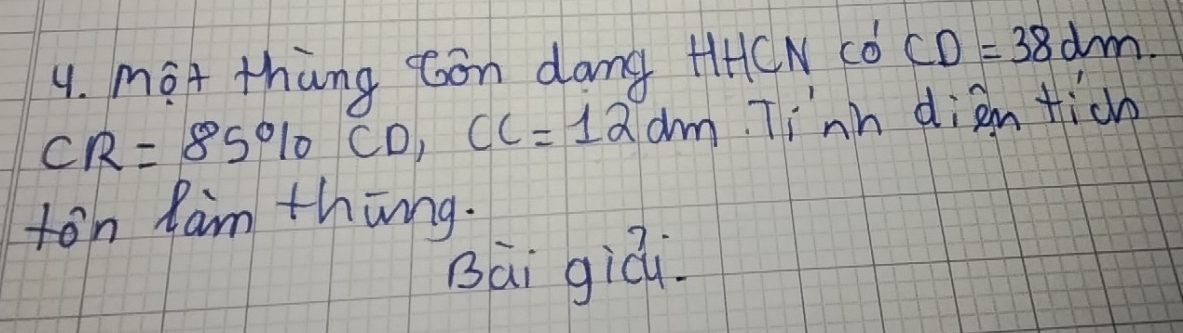 4. Một thùng tôn dạng HHCN có CD = 38 dm.
CR = 85% CD, CC = 12 dm. Tính diện tích
tôn làm thùng.
Bài giải.